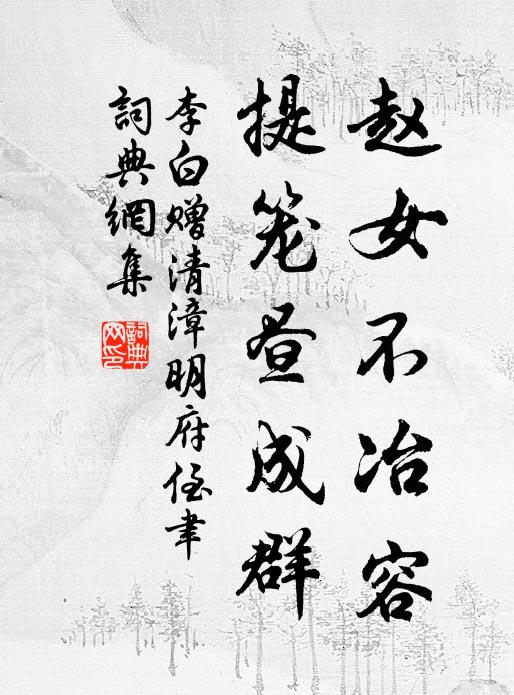 赵女不冶容
提笼昼成群
李白赠清漳明府侄聿
詞典網集
詞典
网印